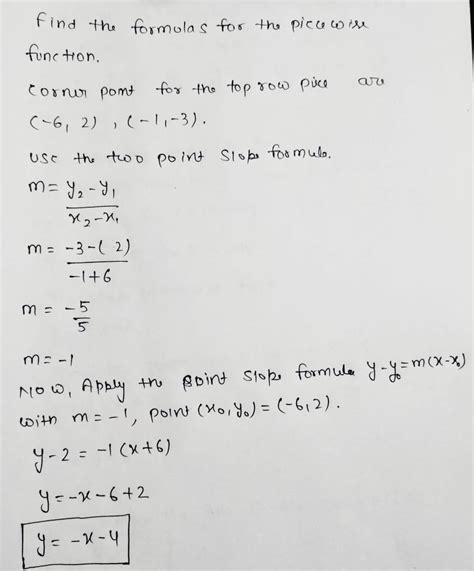 Find the formulas for the picewise
function.
Cornur pont for the top row pice are
(-6, 2) , (-1,-3).
Use the two point slope formulo.
m = y₂-y₁
x₂-x₁
m = -3-( 2)
-1+6
m = -5
5
m = -1
Now, Apply the point slope formula y-y₀=m(x-x₀)
with m = -1, point (x₀,y₀) = (-6,2).
y-2 = -1(x+6)
y = -x-6+2
y = -x-4